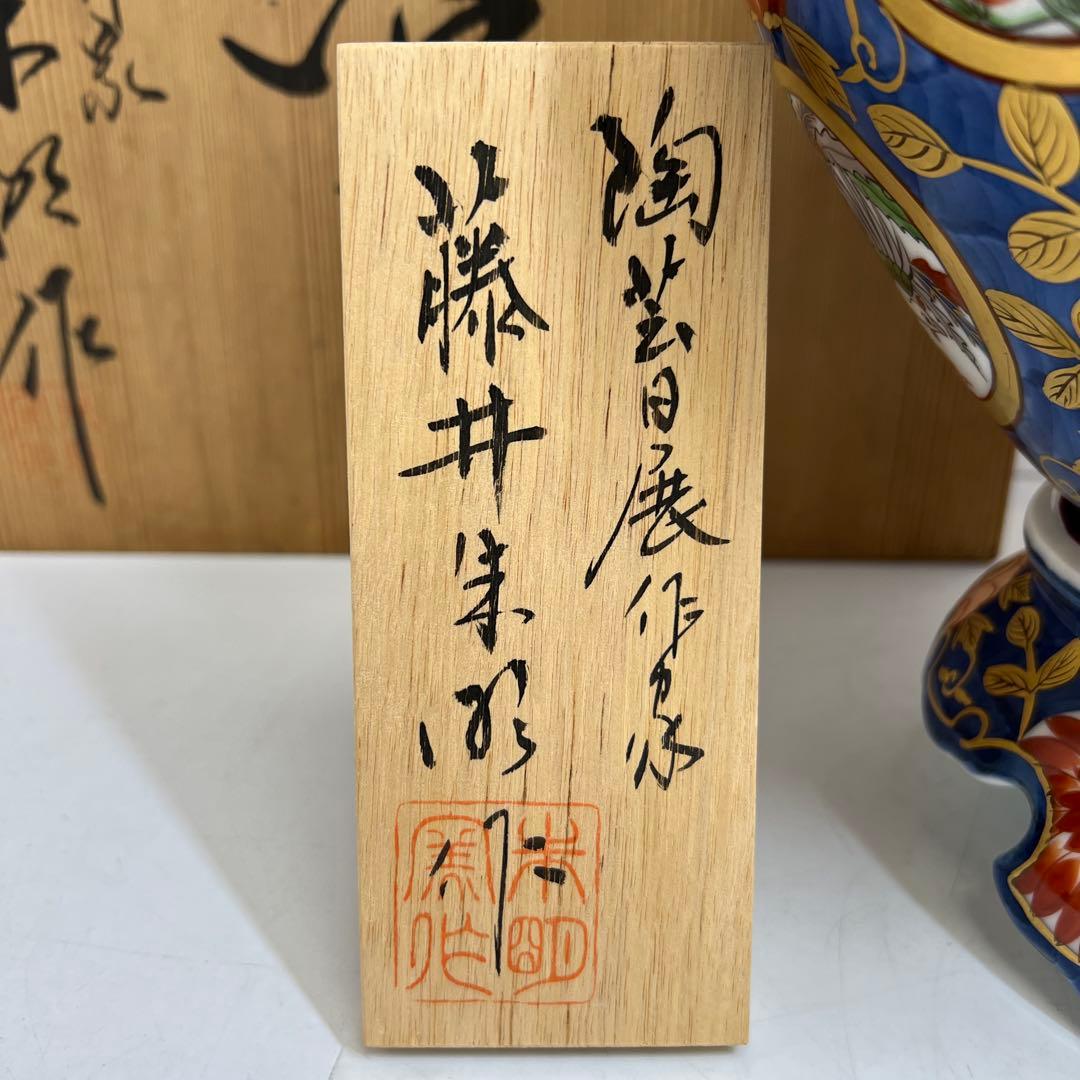 陶芸日展作家
藤井朱明作
朱明
窯作
作